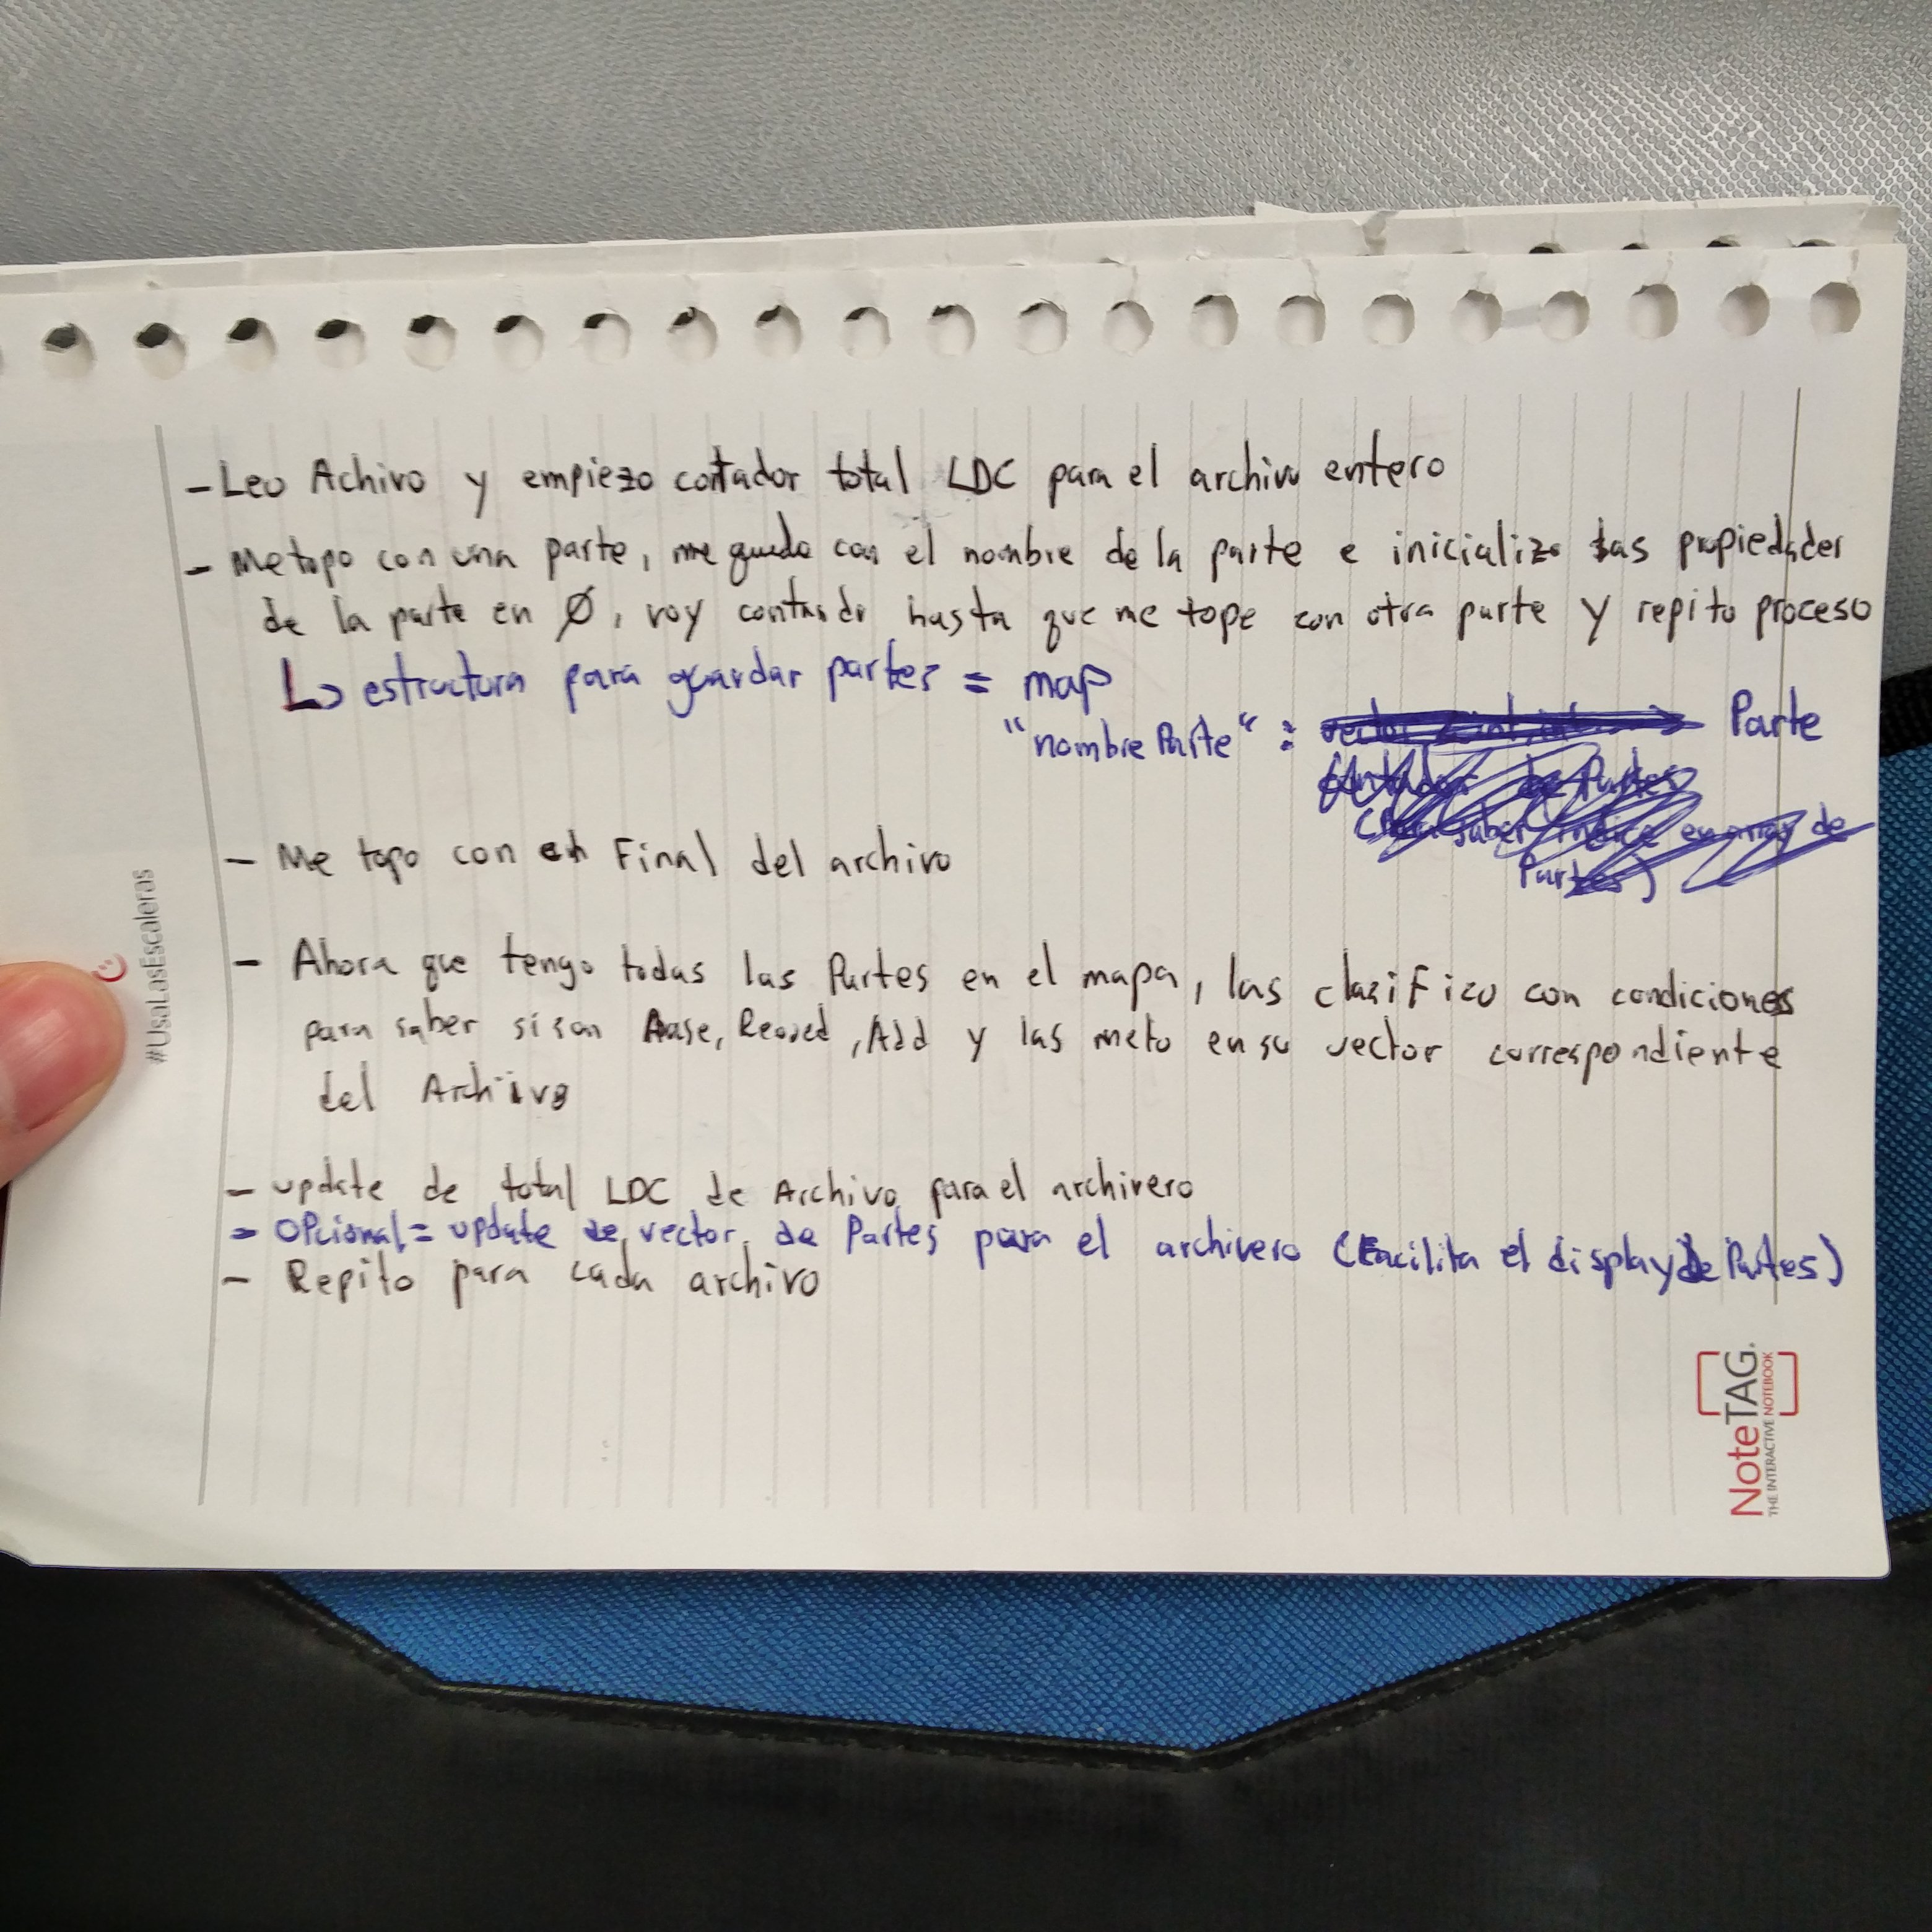 - Leo Achivo y empiezo contador total LDC para el archivo entero
- Me topo con una parte, me quedo con el nombre de la parte e inicializo sas propiedades
de la parte en Ø, voy contando hasta que me tope con otra parte y repito proceso
↳ estructura para guardar partes = map
"nombre Parte" : Parte
- Me topo con Final del archivo
- Ahora que tengo todas las Partes en el mapa, las clasifico con condiciones
para saber si son Base, Reused, Add y las meto en su vector correspondiente
del Archivo
- update de total LDC de Archivo para el archivero
- Opcional = update de vector de Partes para el archivero (Facilita el display de Partes)
- Repito para cada archivo
#UsaLasEscaleras
NoteTAG.
THE INTERACTIVE NOTEBOOK